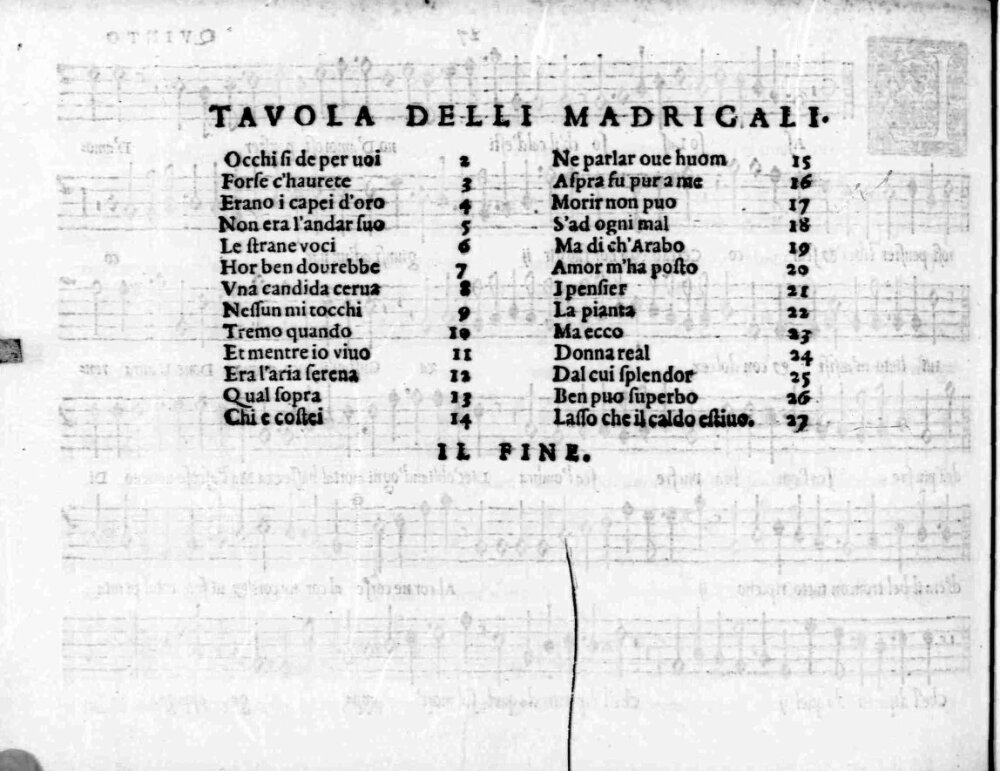 TAVOLA DELLI MADRIGALI.
Occhi ſi de per uoi 2
Forſe c'haurete 3
Erano i capei d'oro 4
Non era l'andar ſuo 5
Le ſtrane voci 6
Hor ben dourebbe 7
Vna candida cerua 8
Neſſun mi tocchi 9
Tremo quando 10
Et mentre io viuo 11
Era l'aria ſerena 12
Qual ſopra 13
Chi e coſtei 14
Ne parlar oue huom 15
Aſpra fu pur a me 16
Morir non puo 17
S'ad ogni mal 18
Ma di ch'Arabo 19
Amor m'ha poſto 20
I penſier 21
La pianta 22
Ma ecco 23
Donna real 24
Dal cui ſplendor 25
Ben puo ſuperbo 26
Laſſo che il caldo eſtiuo. 27
IL FINE.